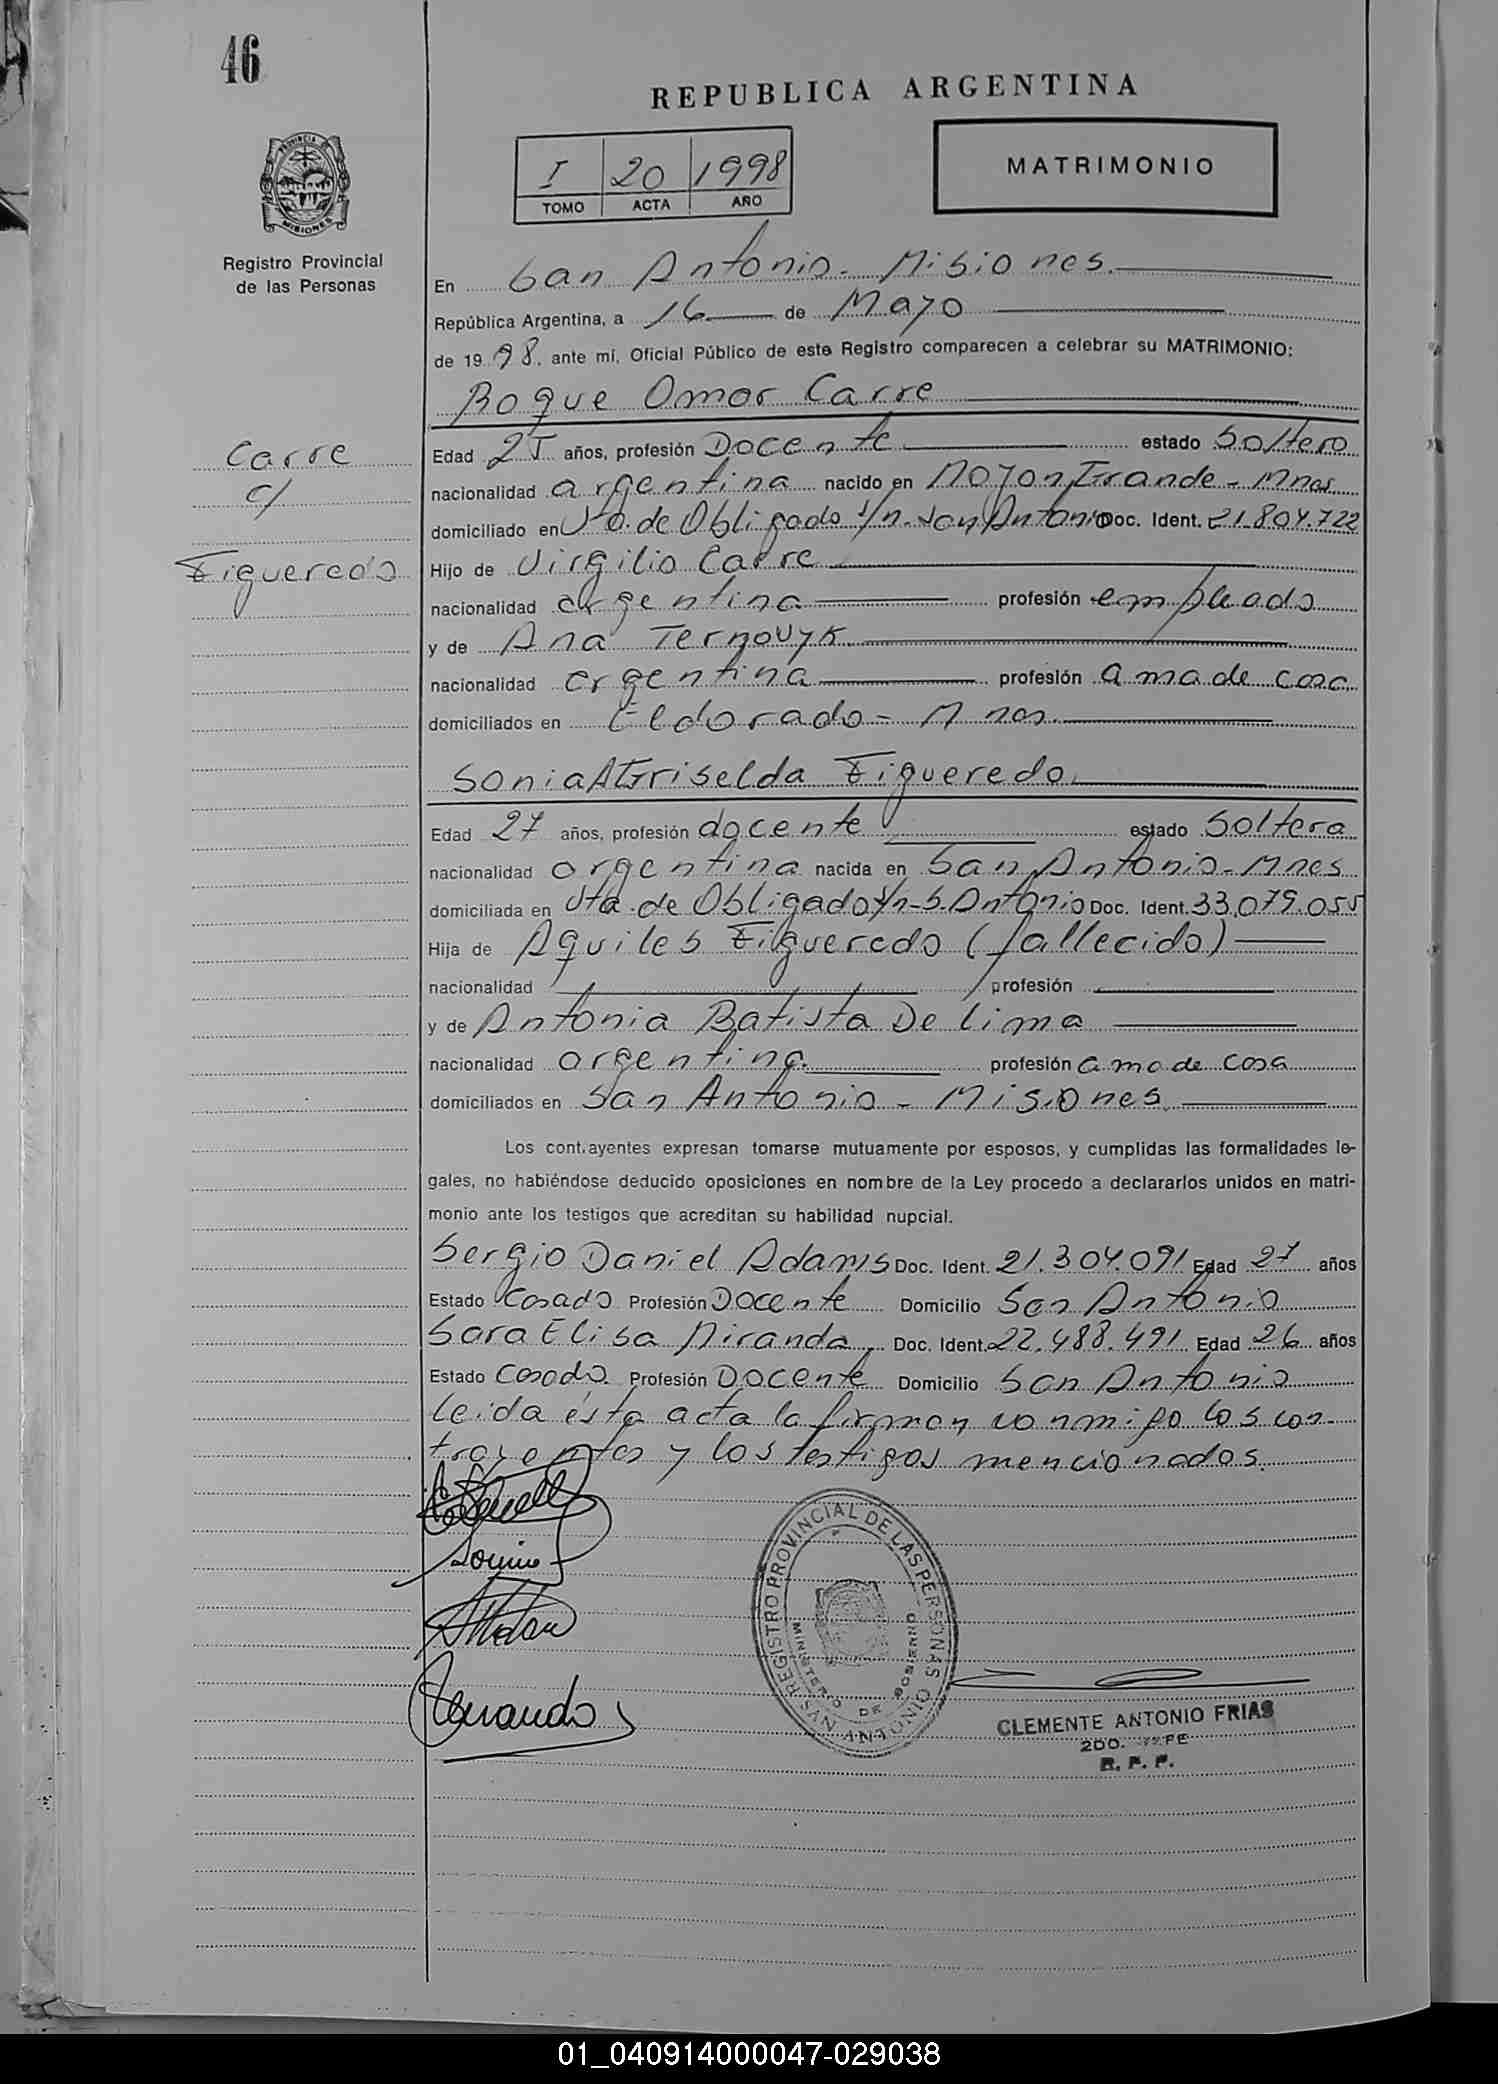 46
REPUBLICA ARGENTINA
I 20 1998
TOMO ACTA AÑO
MATRIMONIO
PROVINCIA DE MISIONES
Registro Provincial
de las Personas
En San Antonio - Misiones.
República Argentina, a 16 de Mayo
de 1998. ante mí, Oficial Público de este Registro comparecen a celebrar su MATRIMONIO:
Roque Omar Carre
Carre
c/
Figueredo
Edad años, profesión Docente estado Soltero
nacionalidad argentina nacido en Grande - Mnes
domiciliado en Vta. de Obligado s/n. San Antonio Doc. Ident. 21.804.722
Hijo de Virgilio Carre
nacionalidad argentina profesión empleado
y de Ana Ternovyk
nacionalidad argentina profesión ama de casa
domiciliados en Eldorado - Mnes.
Sonia Griselda Figueredo
Edad 27 años, profesión docente estado Soltera
nacionalidad argentina nacida en San Antonio - Mnes
domiciliada en Vta. de Obligado s/n - S. Antonio Doc. Ident. 33.079.055
Hija de Aquiles Figueredo (fallecido)
nacionalidad profesión
y de Antonia Batista De Lima
nacionalidad argentina. profesión ama de casa
domiciliados en San Antonio - Misiones.
Los contrayentes expresan tomarse mutuamente por esposos, y cumplidas las formalidades le-
gales, no habiéndose deducido oposiciones en nombre de la Ley procedo a declararlos unidos en matri-
monio ante los testigos que acreditan su habilidad nupcial.
Sergio Daniel Adams Doc. Ident. 21.304.091 Edad 27 años
Estado Casado Profesión Docente Domicilio San Antonio
Sara Elisa Miranda Doc. Ident. 22.488.491 Edad 26 años
Estado Casado. Profesión Docente Domicilio San Antonio
Leida ésta acta la firman conmigo los con-
trayentes y los testigos mencionados.
REGISTRO PROVINCIAL DE LAS PERSONAS
MINISTERIO DE GOBIERNO
SAN ANTONIO
CLEMENTE ANTONIO FRIAS
2DO. JEFE
R. P. P.
01_040914000047-029038